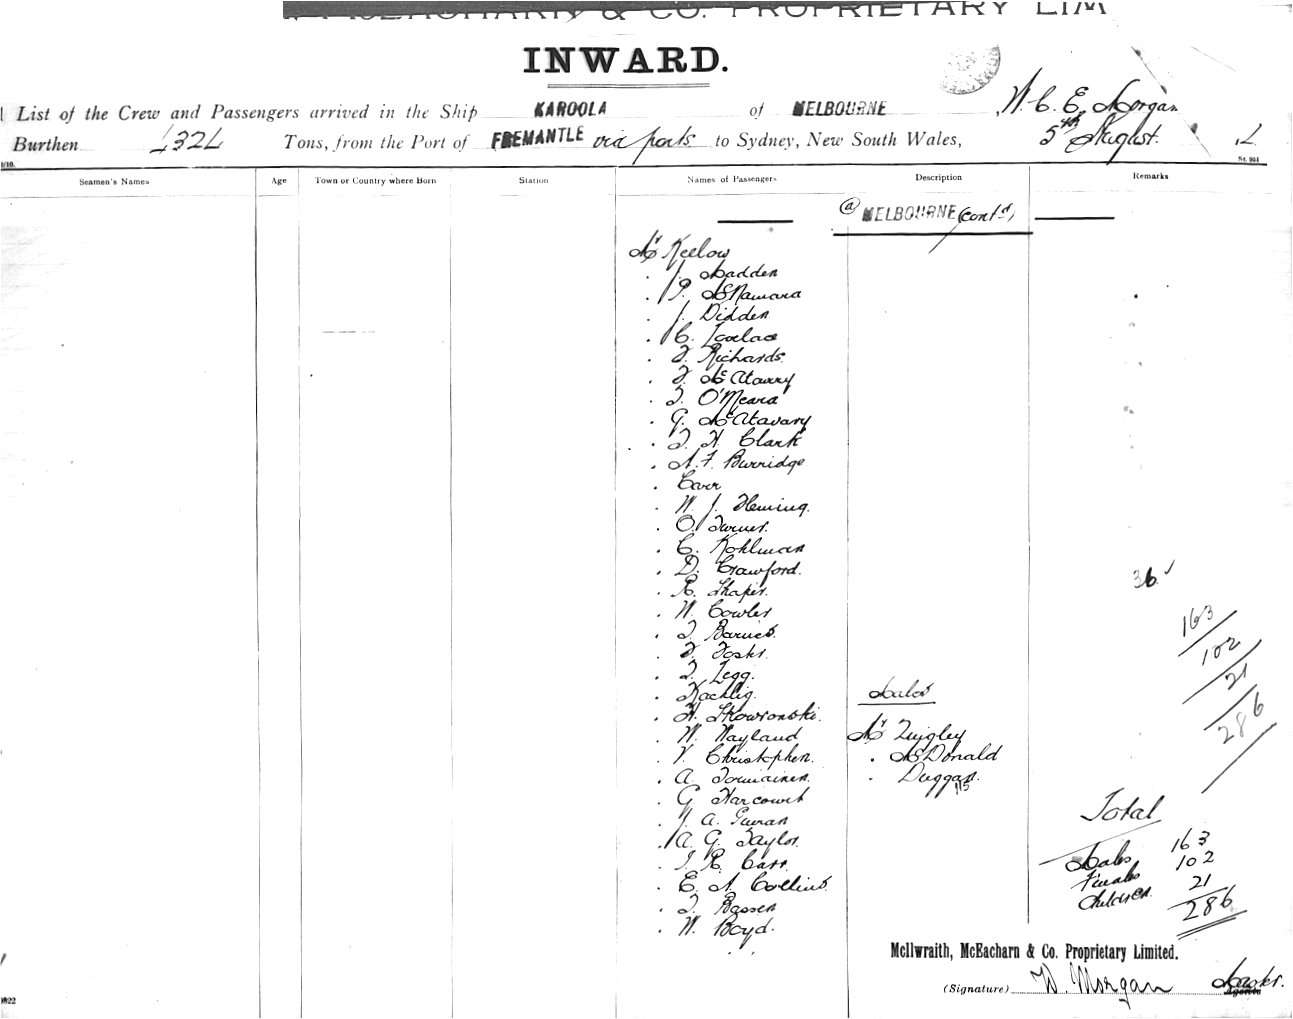 McEACHARN & CO. PROPRIETARY LIM
INWARD.
List of the Crew and Passengers arrived in the Ship KAROOLA of MELBOURNE W. C. E. Morgan
Burthen 4324 Tons, from the Port of FREMANTLE via ports to Sydney, New South Wales, 5th August.
1/10. St. 951
Seamen's Names Age Town or Country where Born Station Names of Passengers Description Remarks
@ MELBOURNE (contd)
Mr Keelow
. J. Madden
. P. McNamara
. J. Didden
. C. Lovelace
. F. Richards
. F. McAtavry
. T. O'Meara
. G. McAtavary
. T. H. Clark
. A. F. Burridge
. Carr
. W. J. Fleming.
. O. Turner.
. C. Kohlman
. D. Crawford.
. R. Shaper.
. W. Cowler
. T. Barnes.
. F. Foster.
. T. Legg.
. Kachlig.
. H. Skowronski.
. W. Wayland
. V. Christophen.
. A. Tomiainen.
. G. Harcourt
. J. A. Guiran
. A. G. Taylor.
. J. R. Carr.
. E. A. Collins.
. T. Bassen
. W. Boyd.
Males
Mr Quigley
. McDonald
. Duggan.
115
36 ✓
163
102
21
286
Total
Males 163
Females 102
Children. 21
286
McIlwraith, McEacharn & Co. Proprietary Limited.
(Signature) W. Morgan Master.
Agents